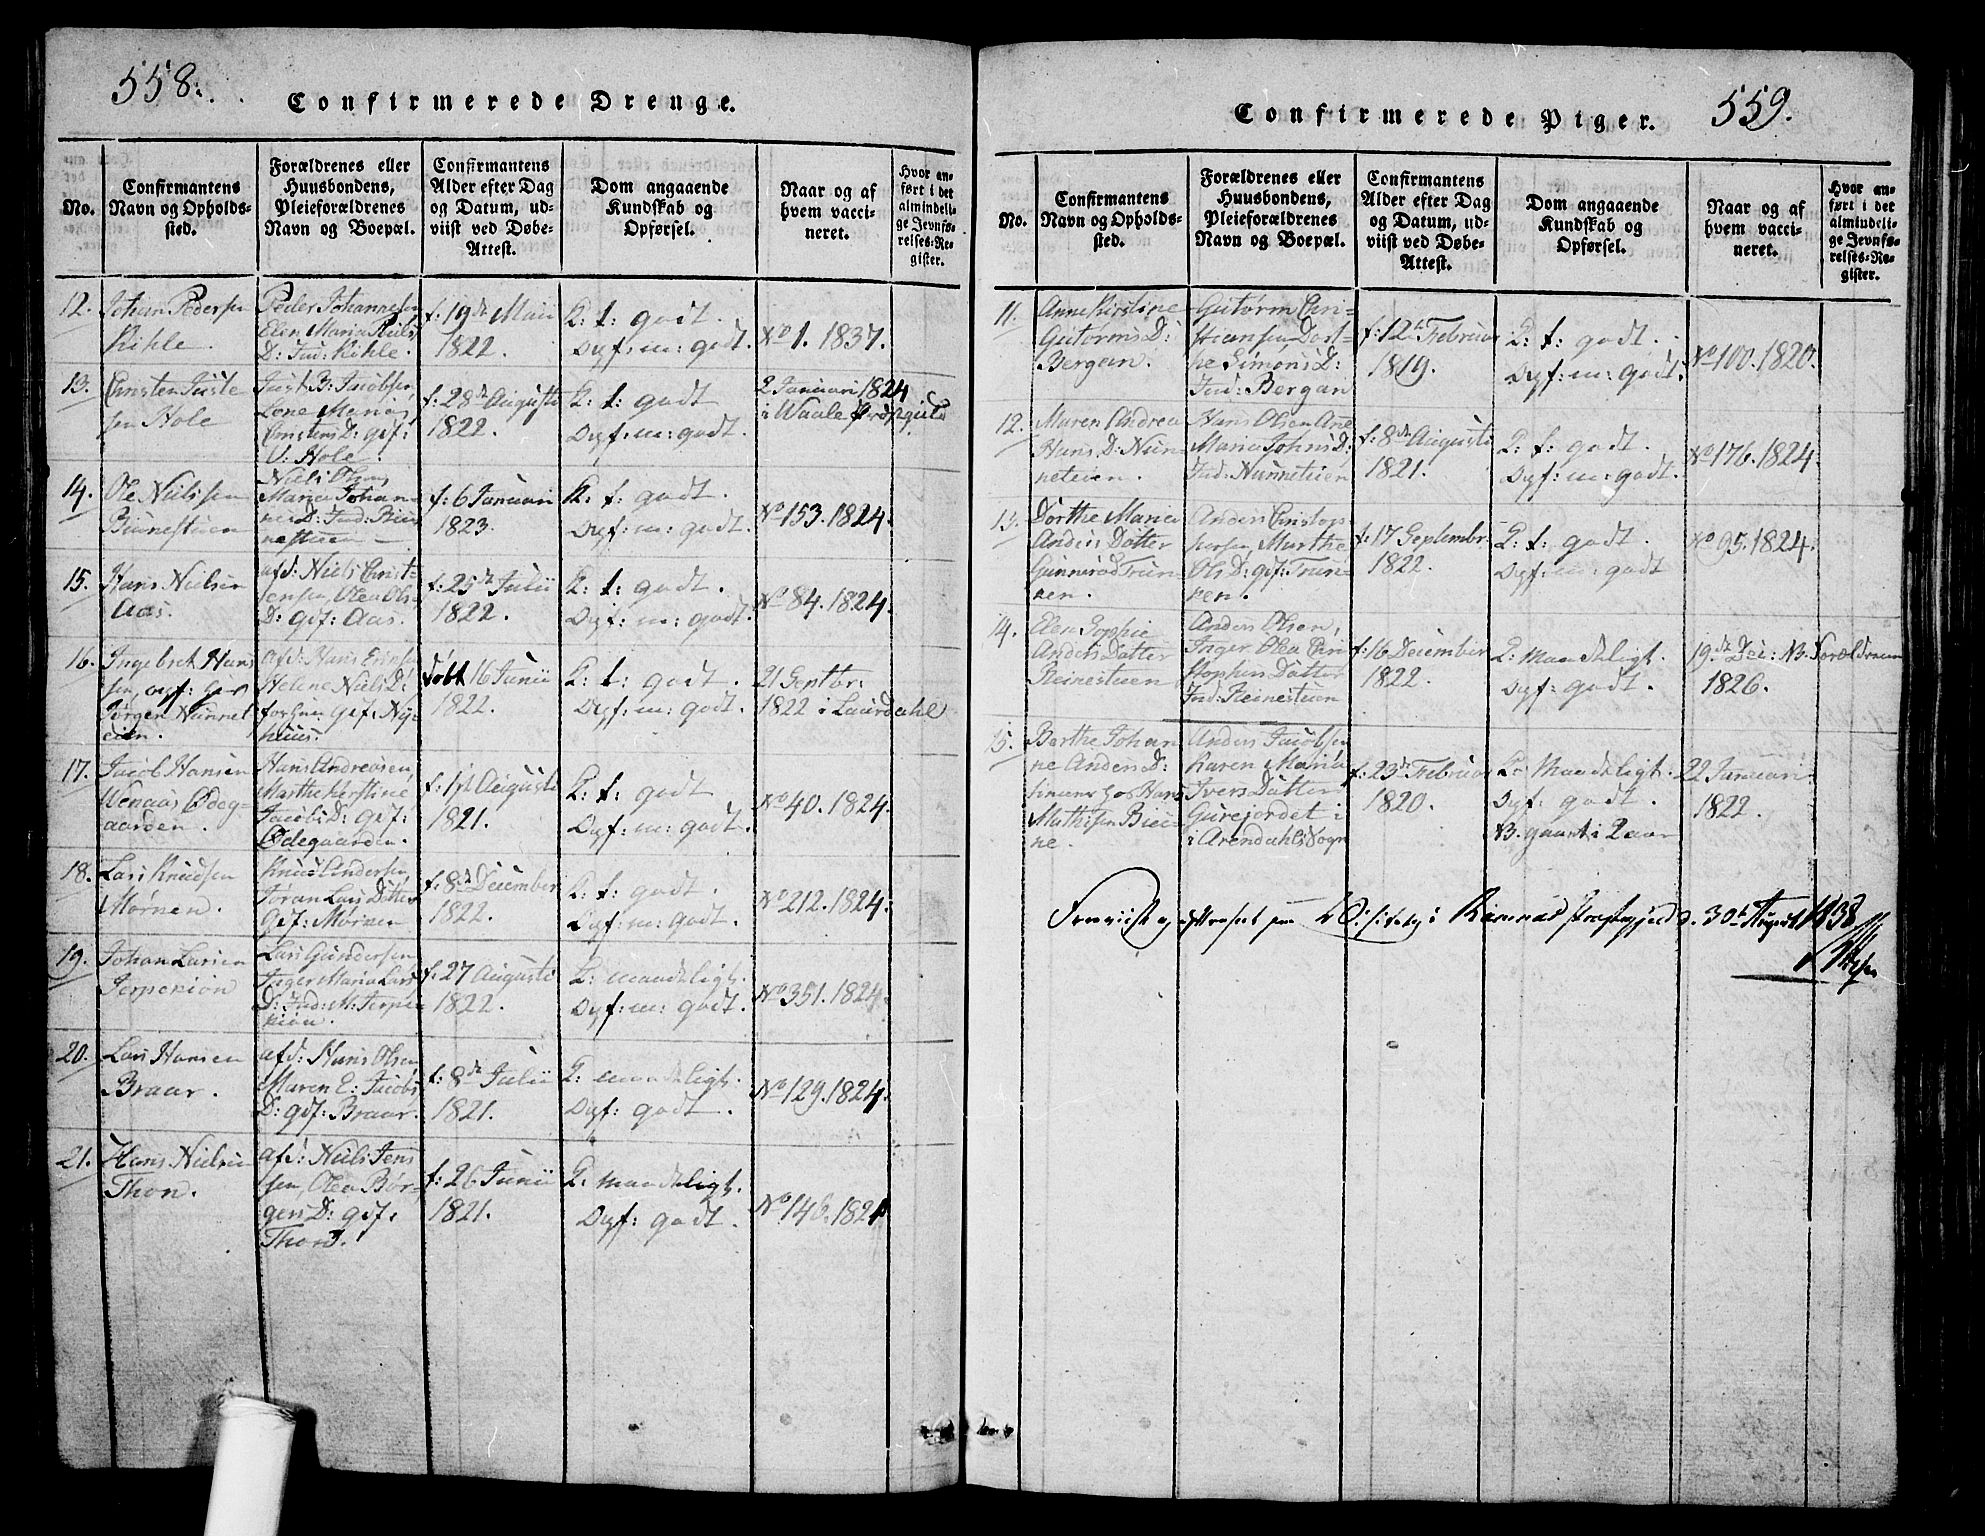 558.
Confirmerede Drenge.
No.
Confirmantens
Navn og Opholds-
sted.
Forældrenes eller
Huusbondens,
Pleieforældrenes
Navn og Boepæl.
Confirmantens
Alder efter Dag
og Datum, ud-
viist ved Døbe-
Attest.
Dom angaaende
Kundskab og
Opførsel.
Naar og af
hvem vacci-
neret.
Hvor an-
ført i det
almindeli-
ge Jevnfø-
relses-Re-
gister.
12.
Johan Pedersen
Kihle.
Peder Johannesen
Elen Maria Niels
D: Ind: Kihle.
f: 19de Maii
1822.
K: t: godt.
Opf: m: godt.
No 1. 1837.
13.
Christen Juste
sen Hole
Just B: Jacobsen,
Lene Maria
Christens D: gif:
U: Hole.
f: 28de Augusti
1822.
K: t: godt
Opf: m: godt.
2 Januari 1824
i Waale Præstgield
14.
Ole Nielssen
Niels
Maria Johan-
ne D: Ind:
f: 6 Januari
1823.
K: t: godt.
Opf: m: godt.
No 153. 1824.
15.
Hans Nielsen
Aas.
afd: Niels Christ-
ensen, Olea Ols
D: gif: Aas.
f: 25de Julii
1822.
K: t: godt.
Opf: m: godt.
No 84. 1824.
16.
Ingebret Hans
sen, opf: hos
Jørgen Nunnet
eien.
afd: Hans
Helene Niels D:
gif: Ny-
huus.
døbt 16 Junii
1822.
K: t: godt.
Opf: m: godt.
21 Septbr:
1822 i Laurdahl
17.
Jacob Hansen
Wenaas Ødeg-
aarden.
Hans Andreasen,
Marthe Kerstine
Jacobs D: gif:
Ødegaarden.
f: 1st Augusti
1821.
K: t: godt
Opf: m: godt.
No 40. 1824.
18.
Lars Knudsen
Mørnen.
Knud Andersen,
Jøran Lars Datter
gif: Mørnen
f: 8de December
1822.
K: t: godt.
Opf: m: godt.
No 212. 1824.
19.
Johan Larsen
Jerpekiøn
Lars Gundersen
Inger Maria Lars
D: Ind: N: Jerpe-
kiøn.
f: 27 Augusti
1822.
K: maadeligt.
Opf: m: godt.
No 351. 1824.
20.
Lars Hansen
Braar.
afd: Hans Olsen
Maren E: Jacobs
D: gif: Braar.
f: 8de Julii
1821.
K: maadeligt.
Opf: godt.
No 129. 1824.
21.
Hans Nielsen
Thon.
afd: Niels Jens
sen, Olea Bør-
gers D: gif:
Thon.
f: 26 Junii
1821.
K: maadeligt.
Opf: godt.
No 146. 1821
559.
Confirmerede Piger.
No.
Confirmantens
Navn og Opholds-
sted.
Forældrenes eller
Huusbondens,
Pleieforældrenes
Navn og Boepæl.
Confirmantens
Alder efter Dag
og Datum, ud-
viist ved Døbe-
Attest.
Dom angaaende
Kundskab og
Opførsel.
Naar og af
hvem vacci-
neret.
Hvor an-
ført i det
almindeli-
ge Jevnfø-
relses-Re-
gister.
11.
Anne Kirstine
Gutorms D:
Bergan.
Gutorm Chri-
stiansen, Dort-
he Simons D:
Ind: Bergan
f: 12te Februar
1819.
K: t: godt.
Opf: m: godt.
No 100. 1820.
12.
Maren Andrea
Hans D: Nun-
neteien.
Hans Olsen Ane
Maria Johns D:
Ind: Nunneteien
f: 8de Augusti
1821.
K: t: godt.
Opf: m: godt.
No 176. 1824.
13.
Dorthe Maria
Anders Datter
Gunnerød Trun-
nen.
Anders Christop
hersen, Marthe
Ols D: gif: Trun-
nen.
f: 17 Septembr.
1822.
K: t: godt.
Opf: m: godt
No 95. 1824.
14.
Elen Sophie
Anders Datter
Reinestuen
Anders Olsen,
Inger Olea Chri
stophers Datter
Ind: Reinestuen
f: 16 December
1822.
K: maadeligt.
Opf: godt.
19de Dec: NB. Forældrenes
1826.
15.
Berthe Johan
ne Anders D:
hos Hans
Mathisen
Anders Jacobsen
Karen Maria
Ivers Datter
Gurejordet i
i Arendahls Sogn
f: 23de Februar
1820.
K: maadeligt.
Opf: godt.
NB. gaaet i 2 aar
22 Januari
1822.
Fremviist og attesteret paa Visitats i Ramnæs Præstegjeld d. 30te August 1838